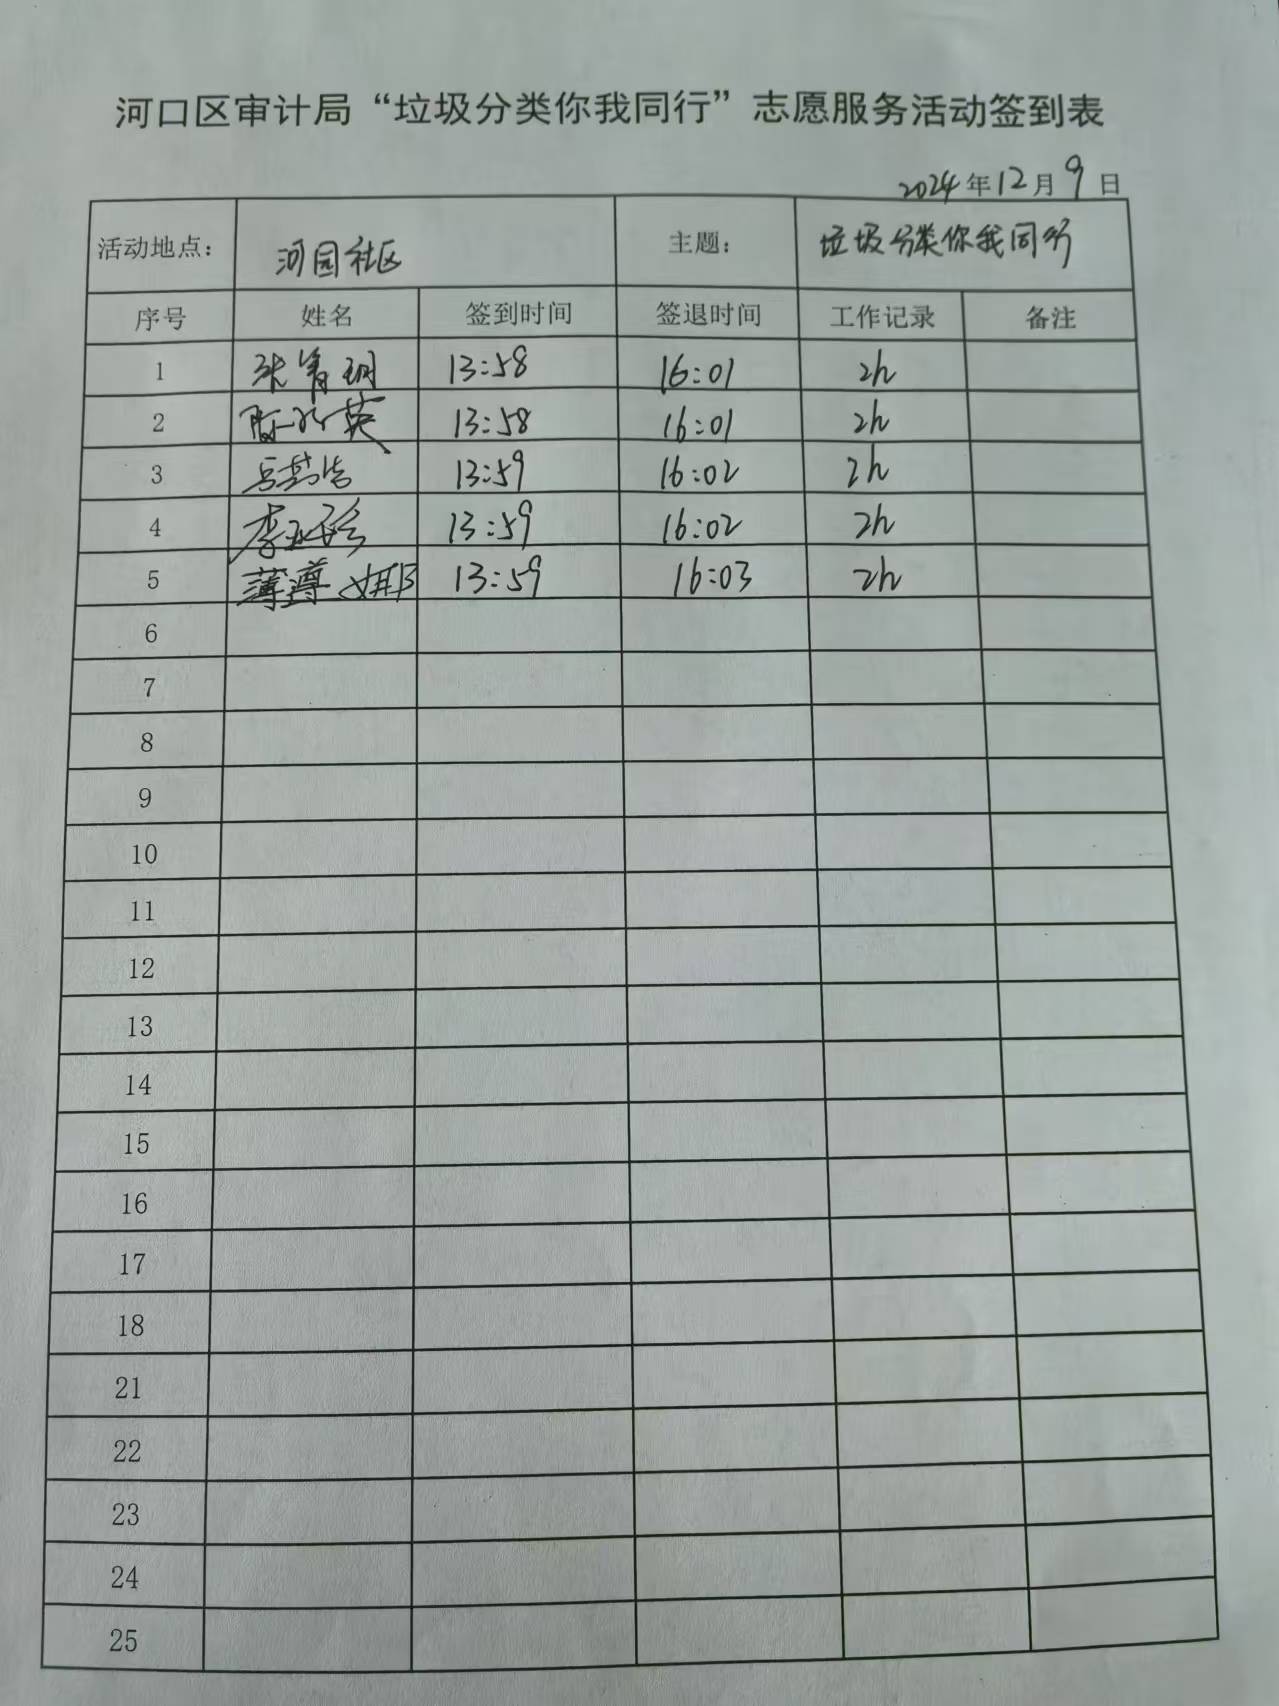 河口区审计局“垃圾分类你我同行”志愿服务活动签到表
2024年12月9日
活动地点： 河园社区 主题： 垃圾分类你我同行
序号 姓名 签到时间 签退时间 工作记录 备注
1 13:58 16:01 2h
2 英 13:58 16:01 2h
3 13:59 16:02 2h
4 李 13:59 16:02 2h
5 薄 13:59 16:03 2h
6
7
8
9
10
11
12
13
14
15
16
17
18
21
22
23
24
25